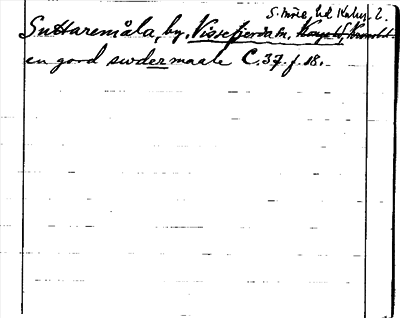 S. Möre, hd Kalm. l.
Suttaremåla, by, Vissefjerda sn,
en gord swdermaale C. 37. f. 18.